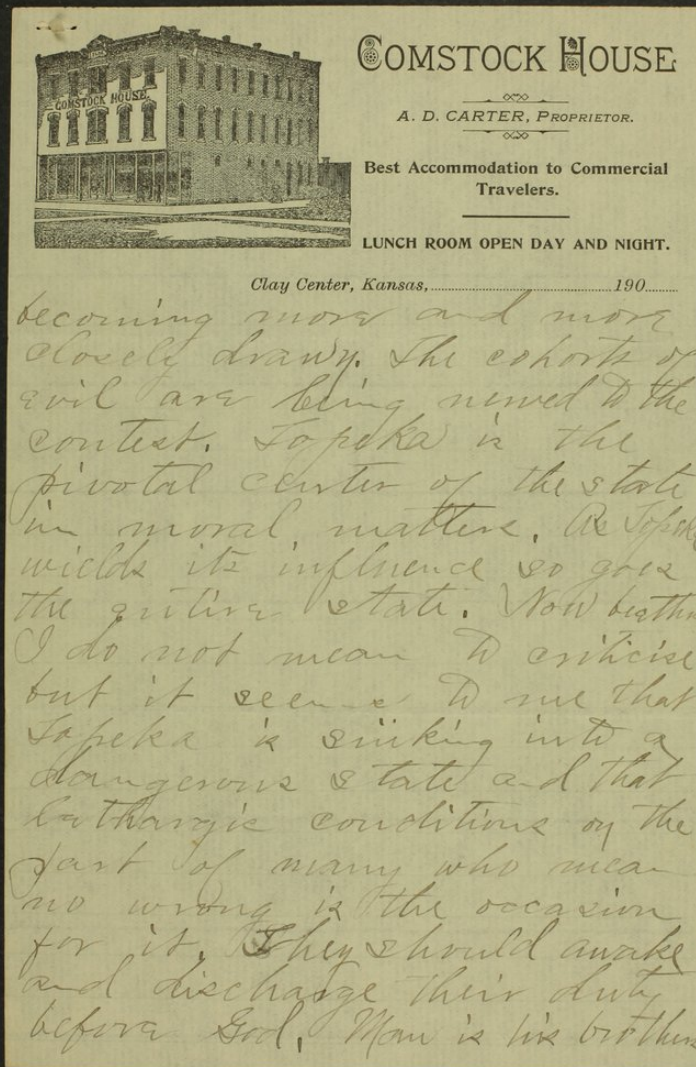 COMSTOCK HOUSE.
COMSTOCK HOUSE
A. D. CARTER, PROPRIETOR.
Best Accommodation to Commercial
Travelers.
LUNCH ROOM OPEN DAY AND NIGHT.
Clay Center, Kansas, 190
becoming more and more
closely drawn. The cohorts of
evil are being nerved to the
contest. Topeka is the
pivotal center of the state
in moral matters. As Topeka
wields its influence so goes
the entire state. Now
I do not mean to criticise
but it seems to me that
Topeka is sinking into a
dangerous state and that
lethargic conditions on the
part of many who mean
no wrong is the occasion
for it. They should awake
and discharge their duty
before God. Man is his brothers